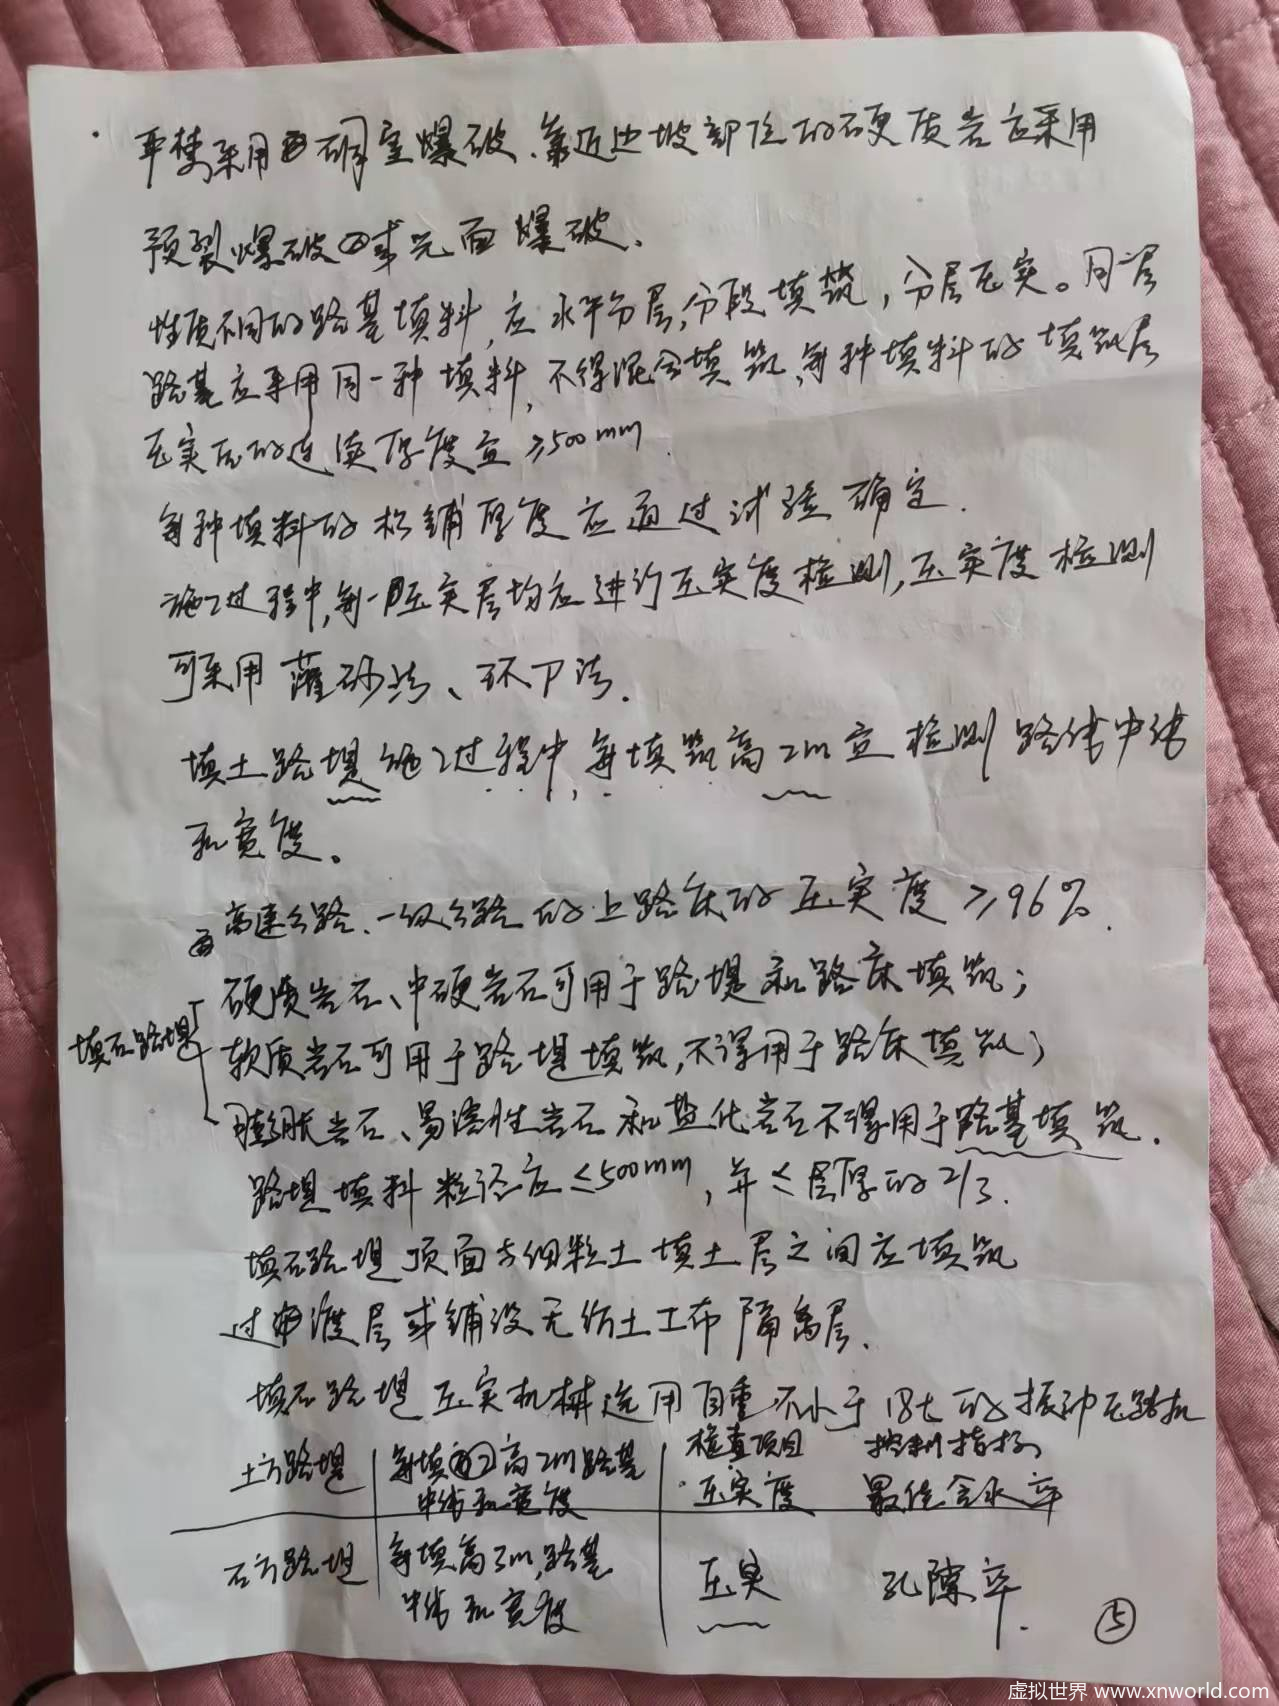 严禁采用硐室爆破、靠近边坡部位的硬质岩应采用
预裂爆破或光面爆破.
性质不同的路基填料,应水平分层,分段填筑,分层压实。同一层
路基应采用同一种填料,不得混合填筑,每种填料的填筑层
压实后的连续厚度宜≥500mm
每种填料的松铺厚度应通过试验确定.
施工过程中,每一压实层均应进行压实度检测,压实度检测
可采用灌砂法、环刀法.
填土路堤施工过程中,每填筑高2m宜检测路线中线
和宽度。
高速公路、一级公路的上路床的压实度≥96%.
硬质岩石、中硬岩石可用于路堤和路床填筑;
填石路堤
软质岩石可用于路堤填筑,不得用于路床填筑;
膨胀岩石、易溶性岩石和盐化岩石不得用于路基填筑.
路堤填料粒径应≤500mm,并≤层厚的2/3.
填石路堤顶面与细粒土填土层之间应填筑
过渡层或铺设无纺土工布隔离层.
填石路堤压实机械选用自重不小于18t的振动压路机
检查项目 控制指标
土方路堤 每填高2m路基 压实度 最佳含水率
中线和宽度
石方路堤 每填高3m,路基 压实 孔隙率.
中线和宽度
⑤
虚拟世界 www.xnworld.com